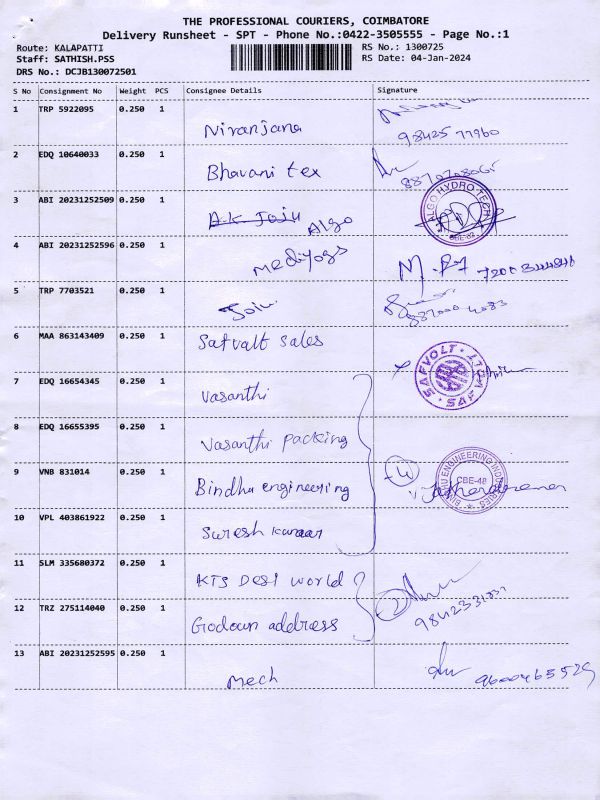 THE PROFESSIONAL COURIERS, COIMBATORE
Delivery Runsheet - SPT - Phone No.:0422-3505555 - Page No.:1
Route: KALAPATTI RS No.: 1300725
Staff: SATHISH.PSS RS Date: 04-Jan-2024
DRS No.: DCJB130072501
S No Consignment No Weight PCS Consignee Details Signature
1 TRP 5922095 0.250 1 Niranjana
98425 77960
2 EDQ 10640033 0.250 1 Bhavani tex
3 ABI 20231252509 0.250 1 A.K Join Algo ALGO HYDRO TECH CBE-62
4 ABI 20231252596 0.250 1 mediyogs
5 TRP 7703521 0.250 1 Join
6 MAA 863143409 0.250 1 Safvalt sales
SAFVOLT SAFVOLT
7 EDQ 16654345 0.250 1 vasanthi
8 EDQ 16655395 0.250 1 vasanthi packing
9 VNB 831014 0.250 1 Bindhu engineering 4 BINDHU ENGINEERING INDUSTRIES CBE-48
10 VPL 403861922 0.250 1 Suresh kumar
11 SLM 335680372 0.250 1 KTS Desi world
12 TRZ 275114040 0.250 1 Godown address 2
13 ABI 20231252595 0.250 1 Mech
9600465529